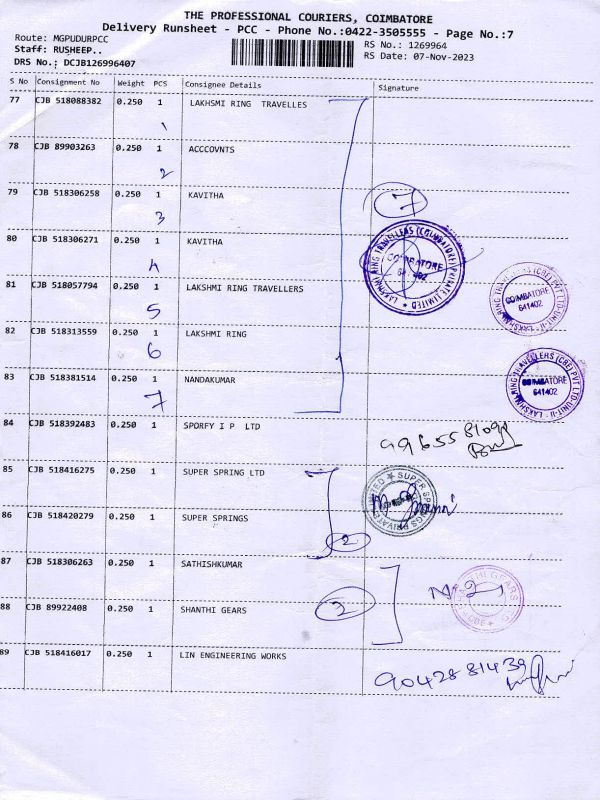 THE PROFESSIONAL COURIERS, COIMBATORE
Delivery Runsheet - PCC - Phone No.:0422-3505555 - Page No.:7
Route: MGPUDURPCC
Staff: RUSHEEP..
DRS No.: DCJB126996407
RS No.: 1269964
RS Date: 07-Nov-2023
S No Consignment No Weight PCS Consignee Details Signature
77 CJB 518088382 0.250 1 LAKHSMI RING TRAVELLES
1
78 CJB 89903263 0.250 1 ACCCOVNTS
2
79 CJB 518306258 0.250 1 KAVITHA
3
7
80 CJB 518306271 0.250 1 KAVITHA
4
LAKSHMI RING TRAVELLERS (COIMBATORE) PRIVATE LIMITED
COIMBATORE
641 402
81 CJB 518057794 0.250 1 LAKSHMI RING TRAVELLERS
5
LAKSHMI RING TRAVELLERS (CBE) PVT LTD-UNIT-II
COIMBATORE
641402
82 CJB 518313559 0.250 1 LAKSHMI RING
6
83 CJB 518381514 0.250 1 NANDAKUMAR
7
LAKSHMI RING TRAVELLERS (CBE) PVT LTD-UNIT-II
COIMBATORE
641402
84 CJB 518392483 0.250 1 SPORFY I P LTD
85 CJB 518416275 0.250 1 SUPER SPRING LTD
SUPER SPRINGS PRIVATE LIMITED
86 CJB 518420279 0.250 1 SUPER SPRINGS
2
87 CJB 518306263 0.250 1 SATHISHKUMAR
88 CJB 89922408 0.250 1 SHANTHI GEARS
2
89 CJB 518416017 0.250 1 LIN ENGINEERING WORKS
9042881439